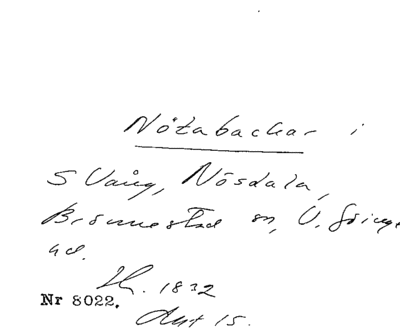 Nötabackar i
S Vång, Nösdala,
Brönnestad sn, V. Göinge
hd.
Lh. 1832
Nr 8022.
Akt 15.